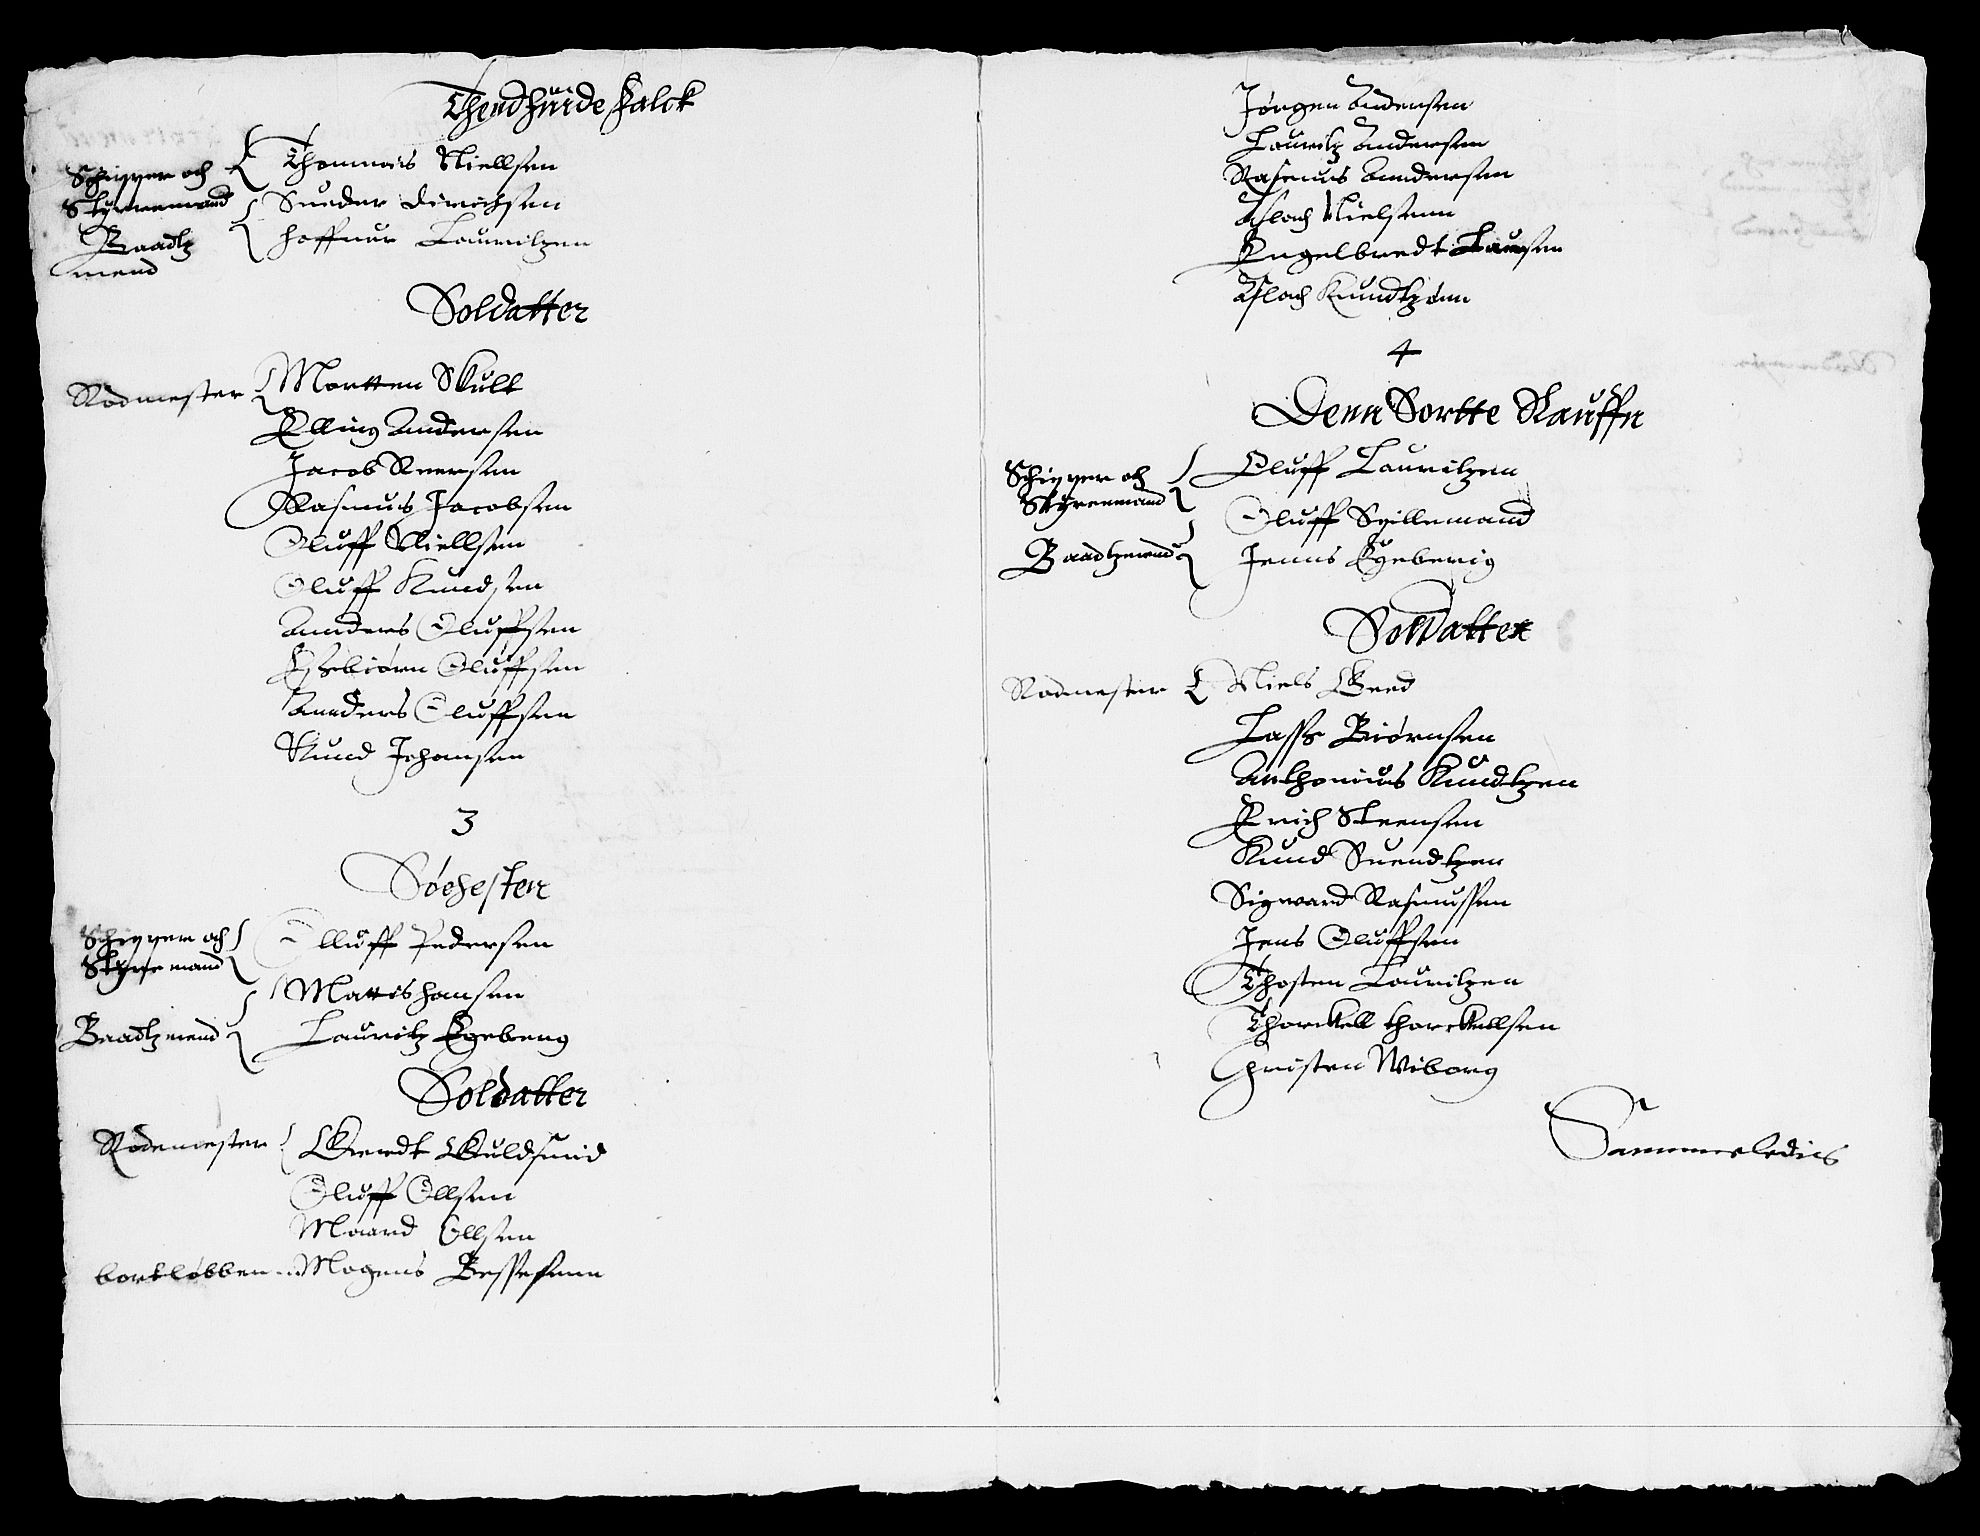 Thend huide Falck
Schipper och
Styremand
Thommis Niellsen
Sueder Dirichsen
Baadtz
mend
Haffnur Lauritzen
Soldatter
Rodmester Mortten Skult
Elling Andersen
Jacob Iuersen
Rasmus Jacobsen
Oluff Niellsen
Oluff Knudsen
Annders Oluffsen
Esbiørn Oluffsen
Annders Oluffsen
Knud Johansen
3
Søehesten
Schipper och
Styremand
Olluff Pedersen
Mattis Hansen
Baadtzmend Lauritz Egeberig
Soldatter
Rodemester Gierdt Guldsmid
Oluff Ollsen
Maard Ollsen
bortløbben Mogens Bessesenn
Jørgen Andersen
Lauritz Andersen
Rasmus Anndersen
Aslach Nielsenn
Engelbredt Laursen
Aslach Knundtzønn
4
Denn Sortte Rauffn
Schipper och
Styremand
Oluff Lauritzen
Oluff Spillemand
Baadtzmend Jenns Egeberig
Soldatter
Rodmester Niels Gred
Lasse Biørnsen
Anthonius Knudtzen
Erich Steensen
Knud Suendtzen
Sigward Rasmussen
Jens Oluffsen
Thosten Lauritzen
Thorckell thorckellsen
Christen Wiborg
Sammeledis